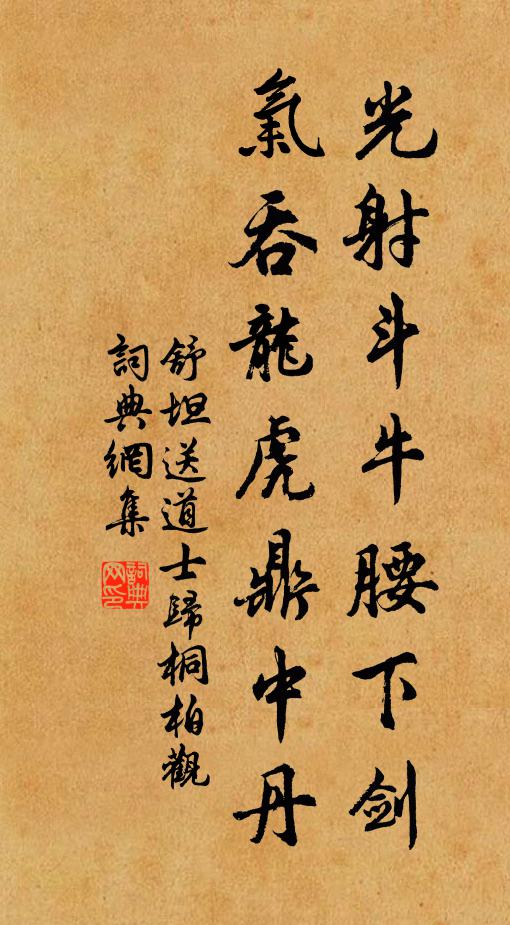 光射斗牛腰下劍
氣吞龍虎鼎中丹
舒坦送道士歸桐柏觀
詞典網集
詞典網印